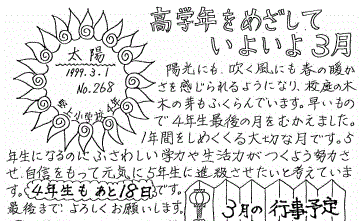 高学年をめざして
いよいよ3月
太陽
1999.3.1
No.268
小学校4年
陽光にも、吹く風にも春の暖か
さを感じられるようになり、校庭の木
木の芽もふくらんでいます。早いもの
で4年生最後の月をむかえました。
1年間をしめくくる大切な月です。5
年生になるのにふさわしい学力や生活力がつくよう努力さ
せ、自信をもって元気に5年生に進級させたいと考えていま
す。4年生もあと18日です。
最後まで、よろしくお願いします。
3月の行事予定